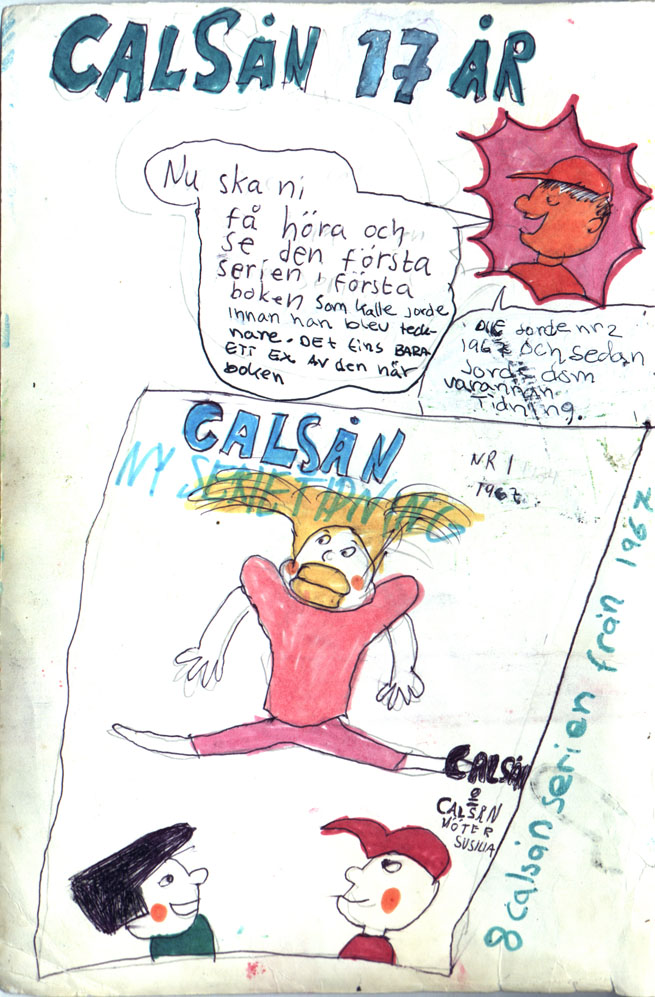 CALSÅN 17 ÅR
Nu ska ni
få höra och
se den första
serien i första
boken som kalle jorde
innan han blev teck-
nare. Det fins BARA
ETT EX AV den när
boken
jorde nr 2
1967 och sedan
jorde dom
varannan
Tidning.
CALSÅN
NY SERIETIDNING
NR 1
1967
CALSÅN
CALSÅN
MÖTER
SUSILIA
8 calsånserien från 1967